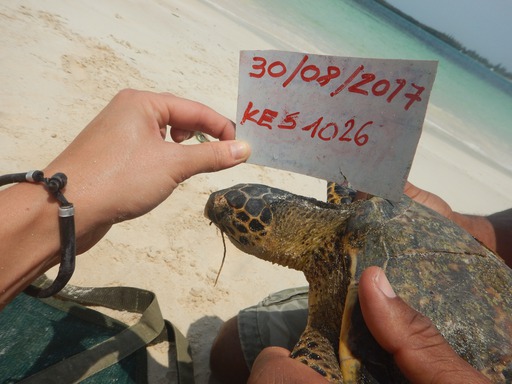 30/08/2017
KES1026